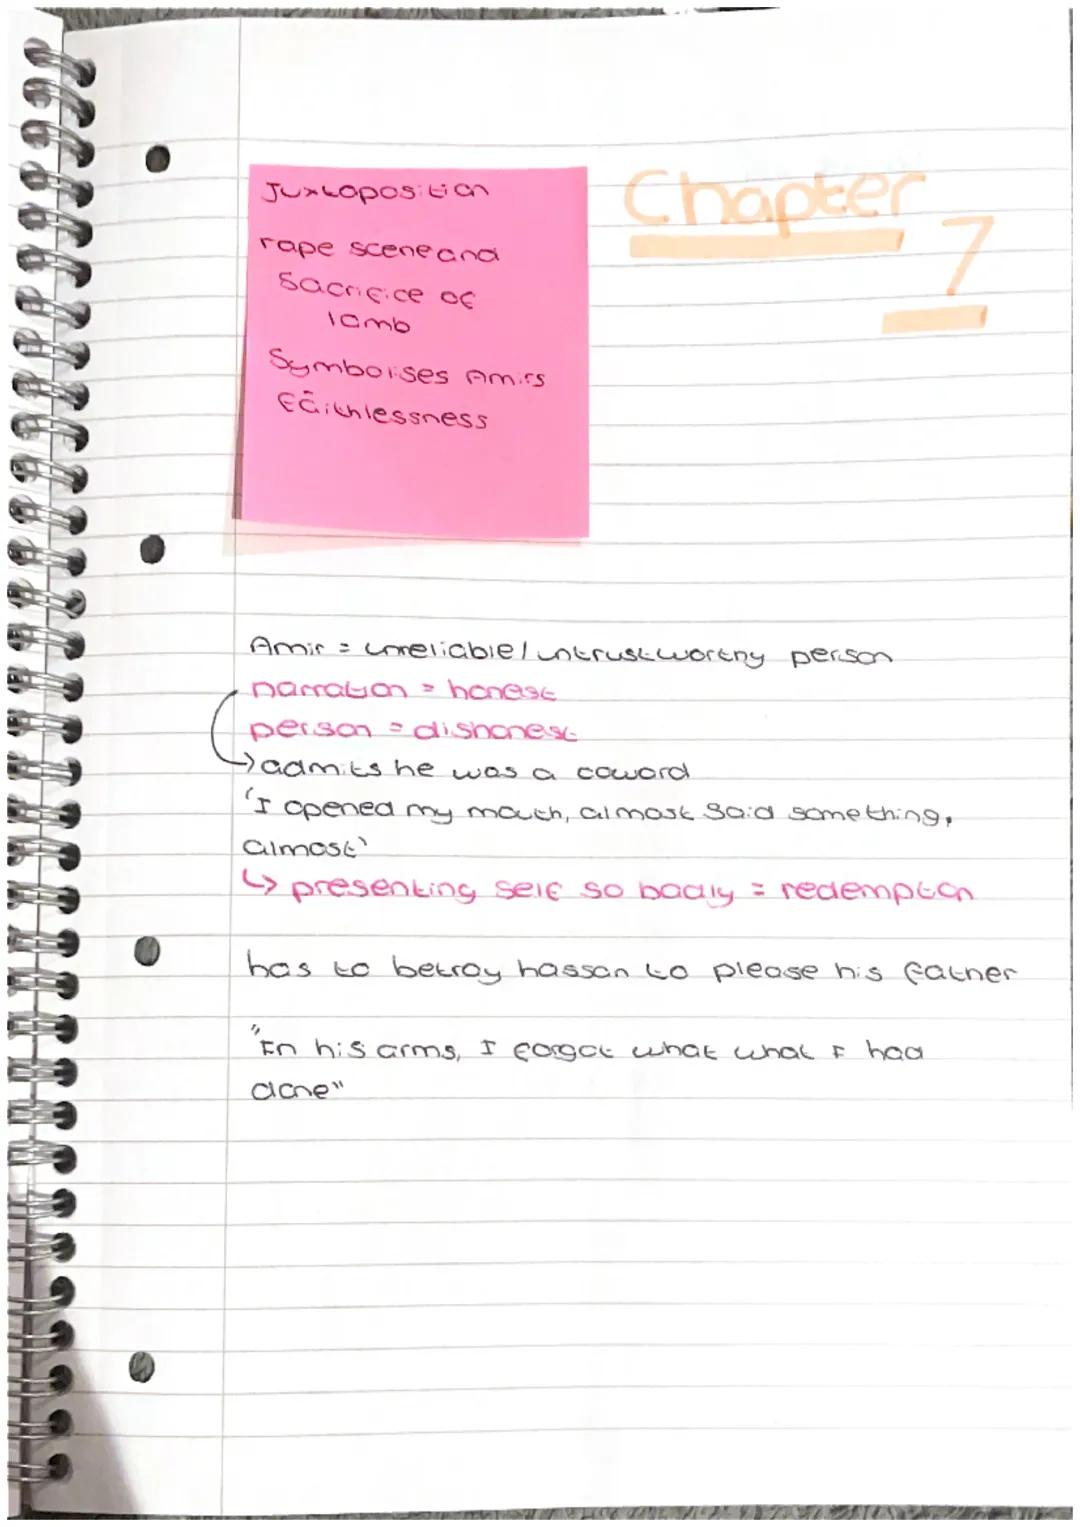 Chapter
7
Juxtaposition
rape scene and
Sacrifice of
lamb
Symbolises Amirs
faithlessness
Amir = unreliable/untrustworthy person
narration = honest
person = dishonest
→ admits he was a coward
'I opened my mouth, almost said something,
almost'
↳ presenting self so badly = redemption
has to betray hassan to please his father
"In his arms, I forgot what what I had
done"